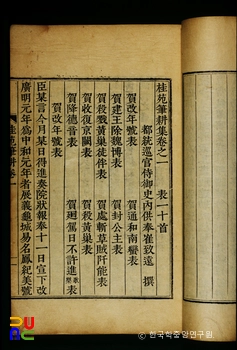 桂苑筆耕集卷之一 表一十首
都統巡官侍御史內供奉崔致遠 撰
賀改年號表 賀通和南蠻表
賀建王除魏博表 賀封公主表
賀殺戮黃巢徒伴表 賀處斬草賊阡能表
賀收復京闕表 賀殺黃巢表
賀降德音表 賀廻駕日不許進歌樂表
賀改年號表
臣某言今月某日得進奏院狀報奉十一日宣下改
廣明元年爲中和元年者展義龜城易名鳳紀美號
桂苑筆耕 卷一
한국학중앙연구원